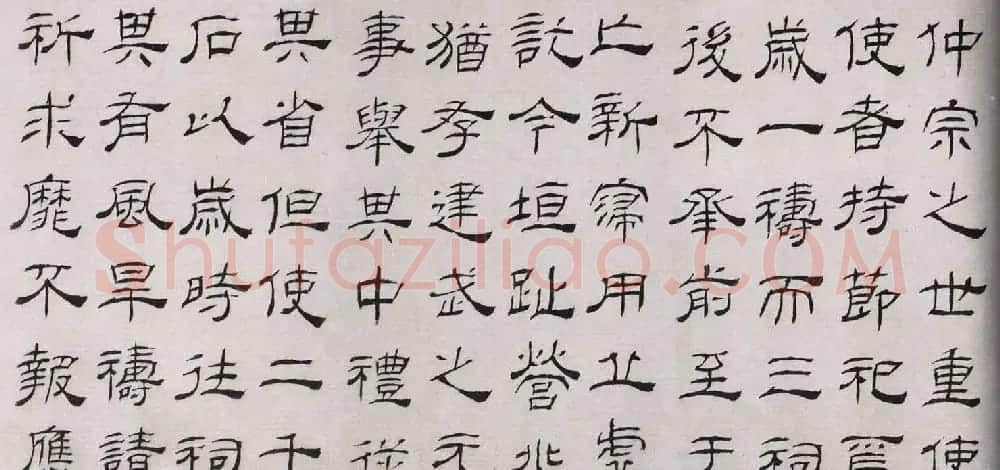 仲宗之世重使
使者持節祀焉
歲一禱而三祠
後不承前至于
亡新寖用丘虛
訖今垣趾營兆
猶存建武之元
事舉其中禮從
其省但使二千
石以歲時往祠
其有風旱禱請
祈求靡不報應
Shufaziliao.COM